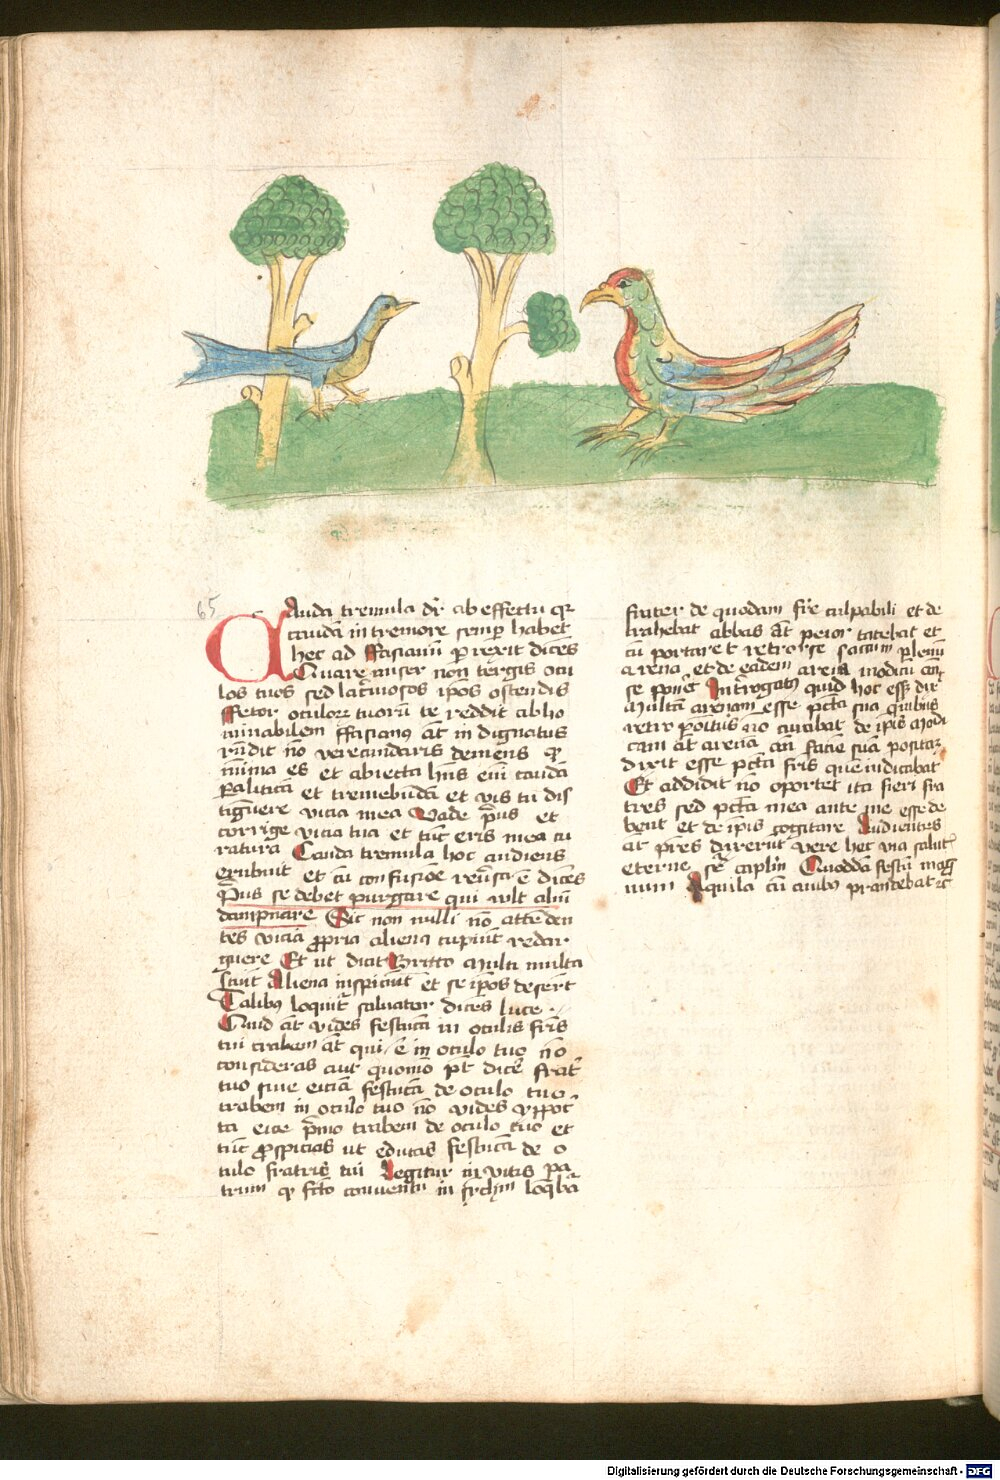 65
Cauda tremula dr̄ ab effectu qr
caudā in tremore semp̄ habet
hec ad ffasianū perrexit dicēs
Quare miser non tergis ocu
los tuos sed lacrimosos ip̄os ostendis
ffetor oculoꝝ tuorū te reddit abho
minabilem ffasianus āt in dignatus
rn̄dit nō verecundaris demēns qꝫ
mīma es et abiecta hn̄s em̄ caudā
paliticā et tremebūdā et vis tu dis
tigwere vicia mea Vade pͥus et
corrige vicia tua et tūc eris mea cu
ratura Cauda tremula hoc audiens
erubuit et cū confusiōe reūsa ē dicēs
Pͥus se debet purgare qui wlt aliū
dampnare Sic non nulli nō attēden
tes viciā propria aliena cupiūt redar
guere Et ut dicit Britto Multi multa
sciūt Aliena inspiciūt et se ip̄os deserūt
Talibus loquit̄ saluator dicēs luce
Quid āt vides festucā in oculis fr̄is
tui trabem āt qui ē in oculo tuo nō
consideras aut quomō pt̄ dicē fratͥ
tuo sine eiciā festucā de oculo tuo
trabem in oculo tuo nō vides yppocͥ
ta eice pͥmo trabem de oculo tuo et
tūc prospicias ut educas festucā de o
culo fratris tui Legitur in vitis pa
trum qꝫ fc̄to conventu in loq̄bā
sinter de quodam fr̄e culpabili et de
trahebāt abbas āt peior tacebat et
cū portaret retrorse saccum plenū
arena et de eadem arena modicū con
se ponēt Int̄rogatus quid hoc essꝫ dix̄
Multā arenam esse pctā sua quibus
retro positus nō curabat de ip̄is Modi
cam āt arenā an̄ faciē suā positaꝫ
dixit esse pctā fr̄is quē iudicabat
Et addidit nō oportet ita fieri fra
tres sed pctā mea ante me esse de
bent et de ip̄is cogitare Audientes
āt pr̄es dixerūt vere hec via salut̄
eterne Quoddā festū mag
num Aquila cū auibus prandebat ꝛc
Digitalisierung gefördert durch die Deutsche Forschungsgemeinschaft - DFG